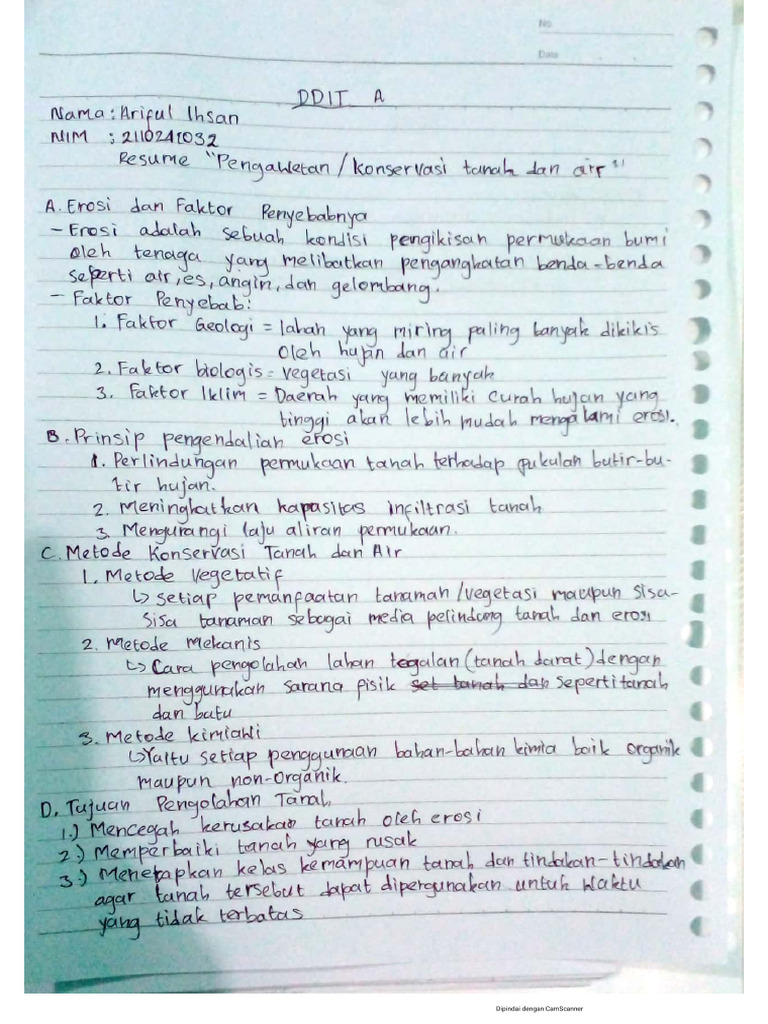 No.
Date
DDIT A
Nama : Ariful Ihsan
NIM : 2110241032
Resume "Pengawetan / konservasi tanah dan air"
A. Erosi dan Faktor Penyebabnya
- Erosi adalah sebuah kondisi pengikisan permukaan bumi
oleh tenaga yang melibatkan pengangkatan benda-benda
seperti air, es, angin, dan gelombang.
- Faktor Penyebab :
1. Faktor Geologi = lahan yang miring paling banyak dikikis
oleh hujan dan air
2. Faktor biologis = vegetasi yang banyak
3. Faktor Iklim = Daerah yang memiliki curah hujan yang
tinggi akan lebih mudah mengalami erosi.
B. Prinsip pengendalian erosi
1. Perlindungan permukaan tanah terhadap pukulan butir-bu-
tir hujan.
2. Meningkatkan kapasitas infiltrasi tanah
3. Mengurangi laju aliran permukaan.
C. Metode Konservasi Tanah dan Air
1. Metode vegetatif
↳ setiap pemanfaatan tanaman/vegetasi maupun sisa-
sisa tanaman sebagai media pelindong tanah dan erosi
2. Metode Mekanis
↳ Cara pengolahan lahan tegalan (tanah darat) dengan
menggunakan sarana fisik set tanah dan seperti tanah
dan batu
3. Metode kimiawi
↳ Yaitu setiap penggunaan bahan-bahan kimia baik organik
maupun non-organik.
D. Tujuan Pengolahan Tanah
1.) Mencegah kerusakan tanah oleh erosi
2.) Memperbaiki tanah yang rusak
3.) Menetapkan kelas kemampuan tanah dan tindakan-tindakan
agar tanah tersebut dapat dipergunakan untuk waktu
yang tidak terbatas
Dipindai dengan CamScanner